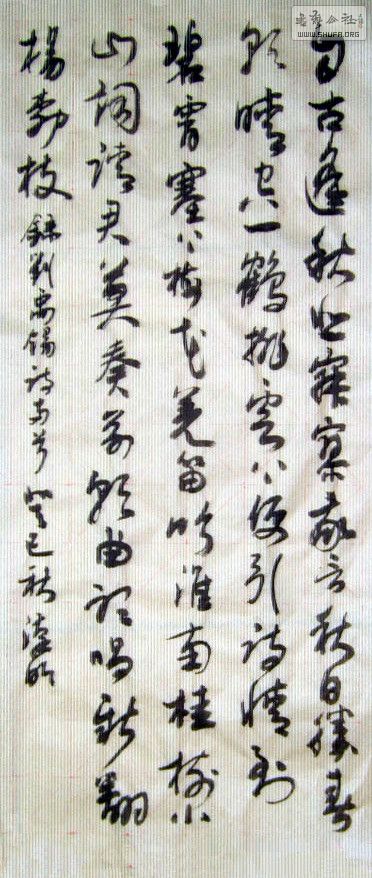 自古逢秋悲寂寥我言秋日勝春
朝晴空一鶴排雲上便引詩情到
碧霄塞北梅花羌笛吹淮南桂樹小
山詞請君莫奏前朝曲聽唱新翻
楊柳枝 錄劉禹錫詩兩首 癸巳秋
書藝公社
WWW.SHUFA.ORG